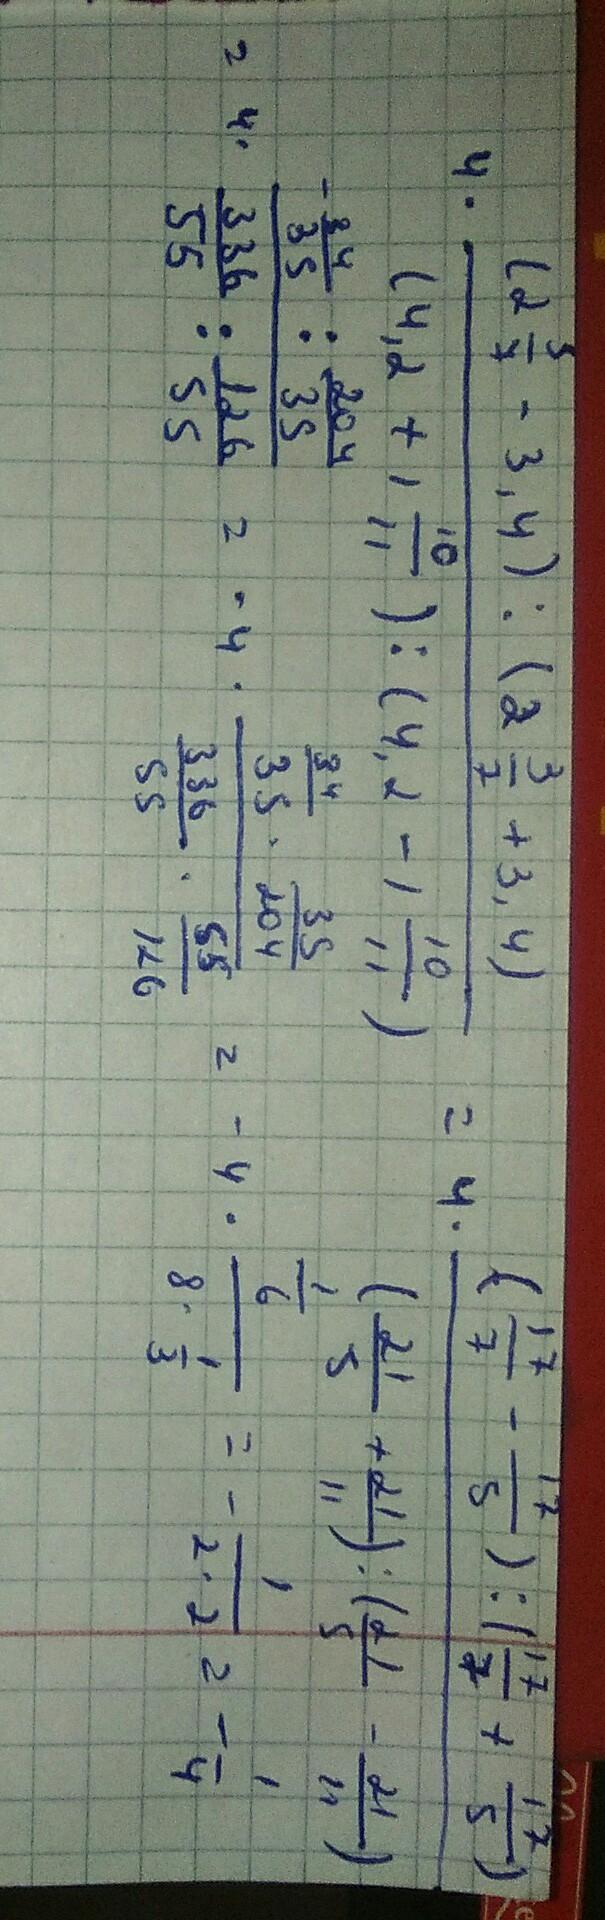 4 · ((2 5/7 - 3,4) : (2 3/7 + 3,4)) / ((4,2 + 1 10/11) : (4,2 - 1 10/11)) = 4 · ((17/7 - 17/5) : (17/7 + 17/5)) / ((21/5 + 21/11) : (21/5 - 21/11))
= 4 · (-34/35 : 204/35) / (336/55 : 126/55) = -4 · (34/35 · 35/204) / (336/55 · 55/126) = -4 · (1/6) / (8 · 1/3) = - 1/(2·2) = - 1/4